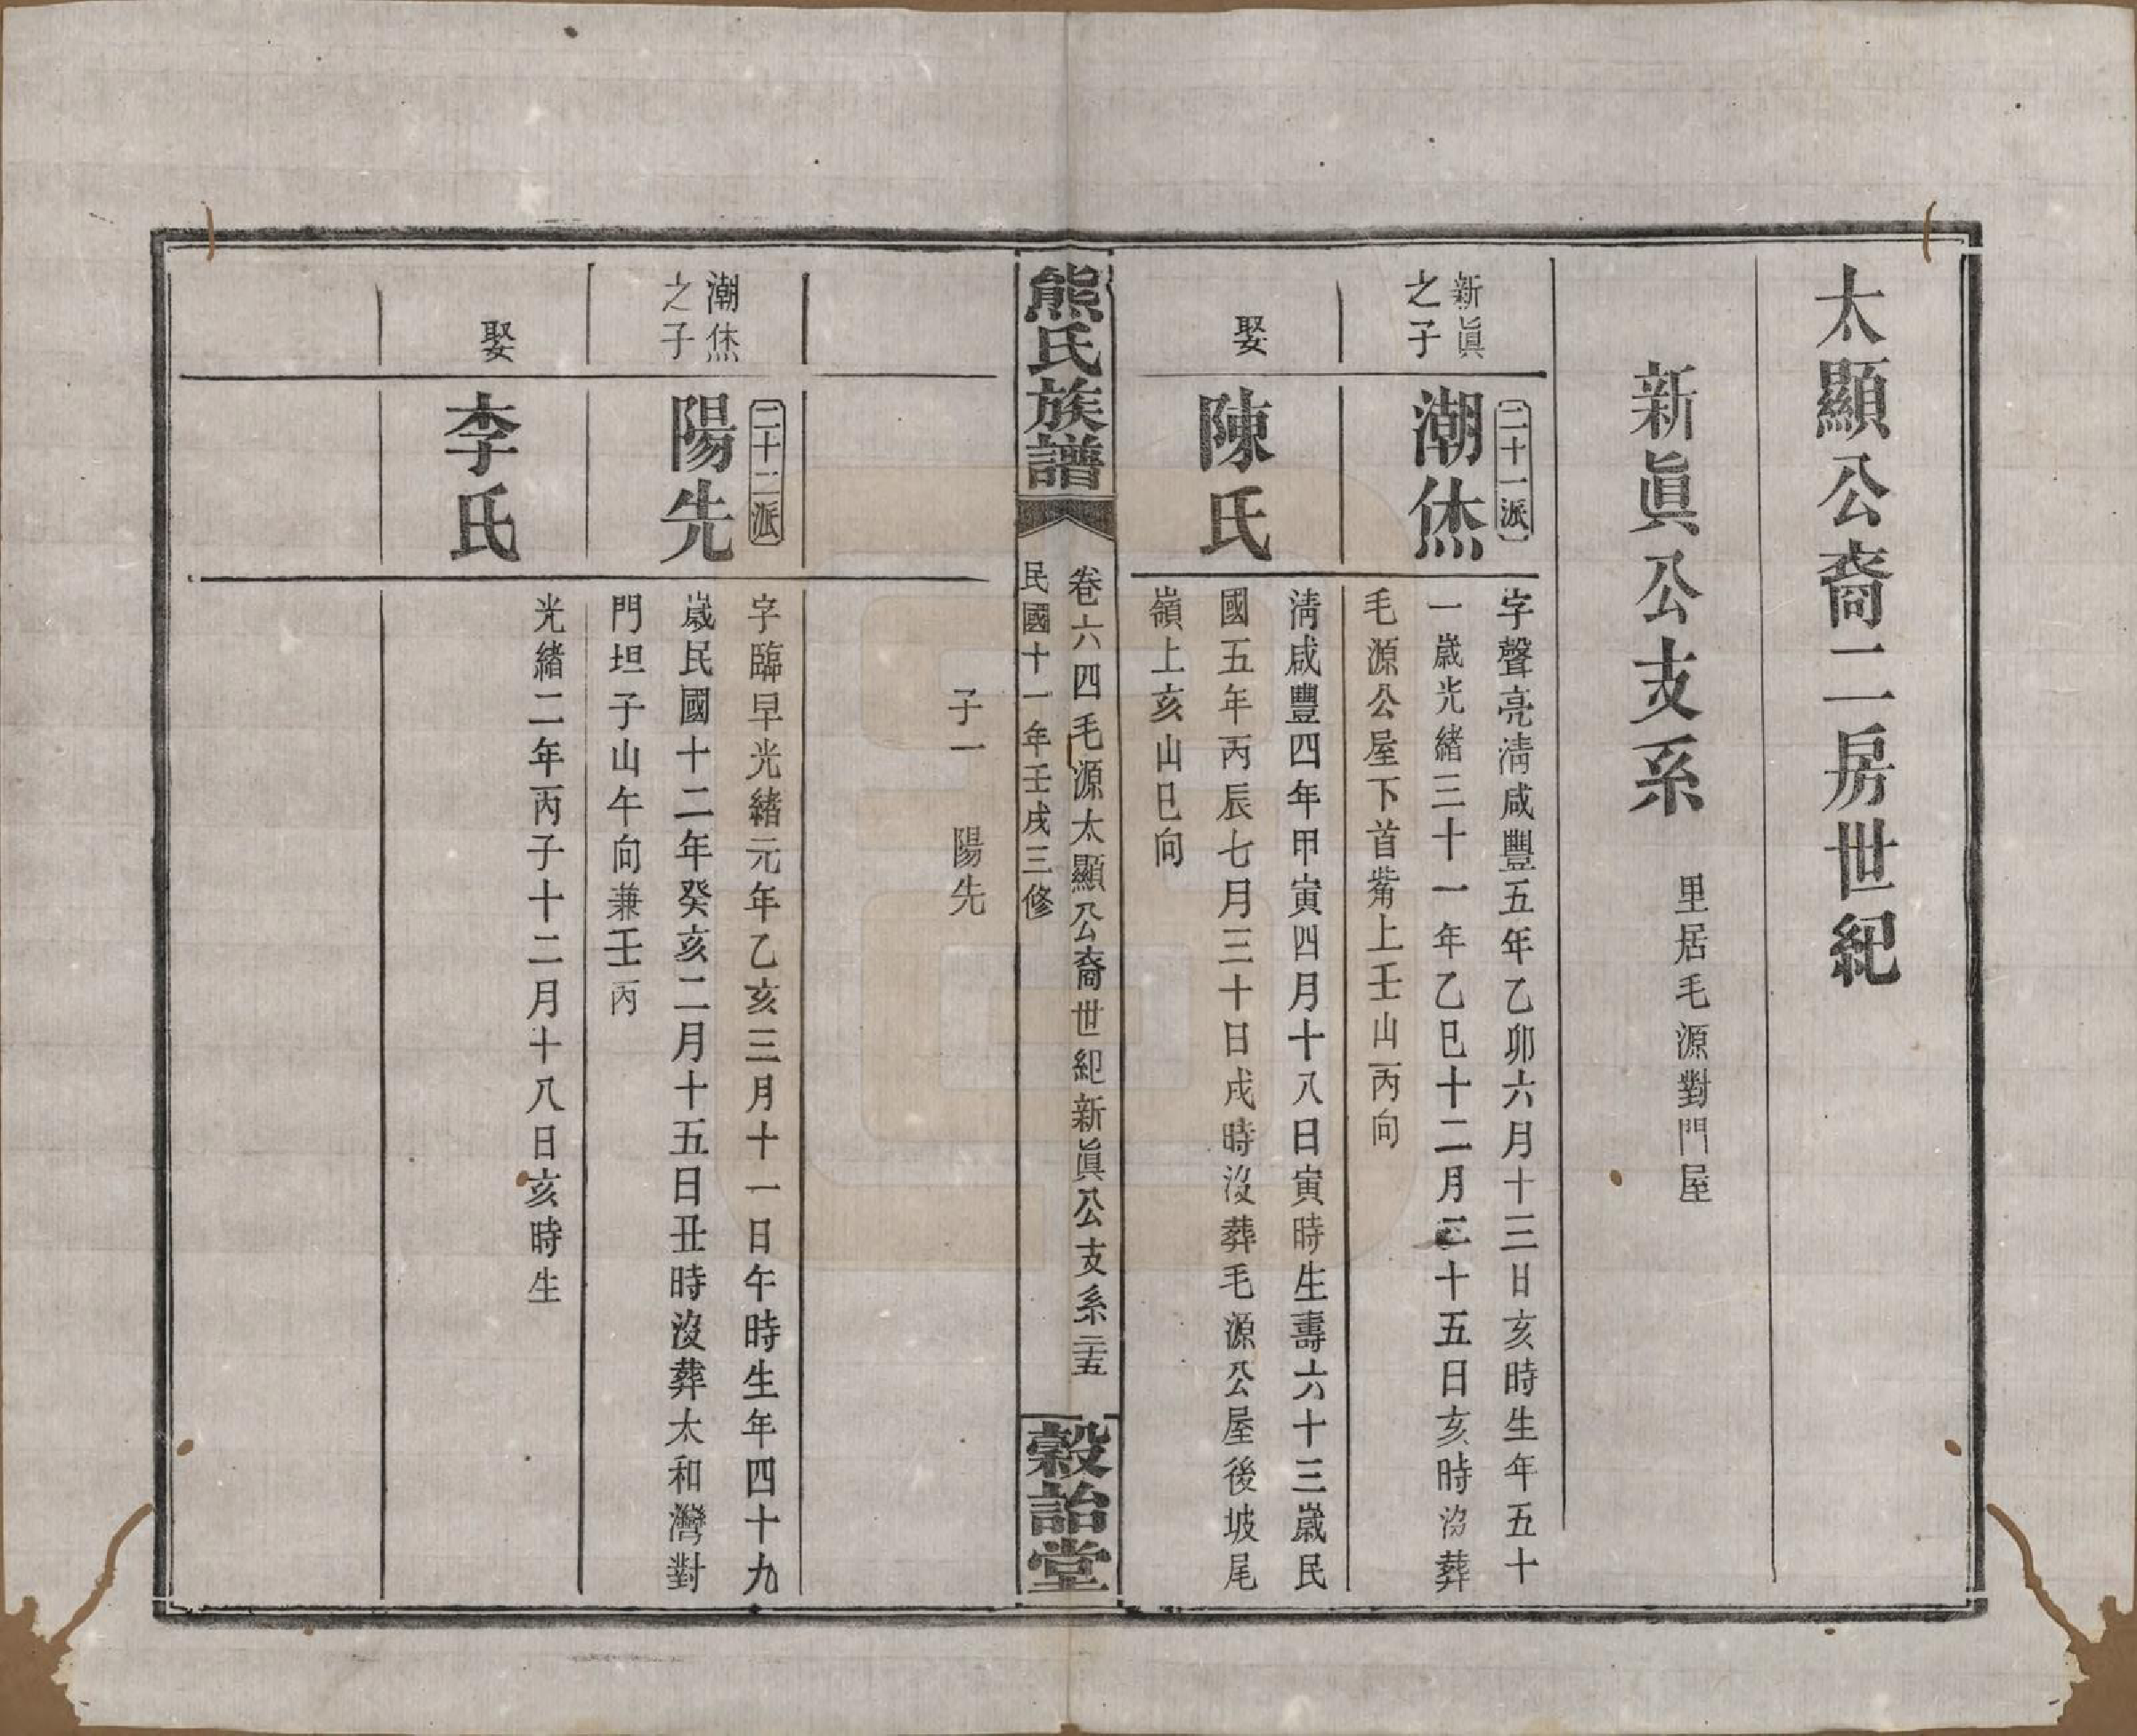 太顯公裔二房世紀
新眞公支系
里居毛源對門屋
新眞
之子
二十一派
潮烋
字聲亮淸咸豐五年乙卯六月十三日亥時生年五十
一歲光緒三十一年乙巳十二月二十五日亥時沒葬
毛源公屋下首觜上壬山丙向
娶
陳氏
淸咸豐四年甲寅四月十八日寅時生壽六十三歲民
國五年丙辰七月三十日戌時沒葬毛源公屋後坡尾
嶺上亥山巳向
熊氏族譜
卷六四毛源太顯公裔世紀新眞公支系 二十五
民國十一年壬戌三修
榖詒堂
子一 陽先
潮烋
之子
二十二派
陽先
字臨早光緒元年乙亥三月十一日午時生年四十九
歲民國十二年癸亥二月十五日丑時沒葬太和灣對
門坦子山午向兼壬丙
娶
李氏
光緒二年丙子十二月十八日亥時生